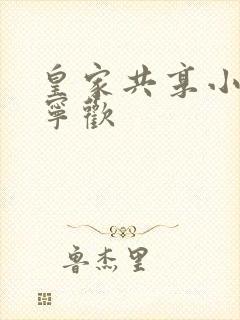 皇家共享小
寧歡
魯杰里